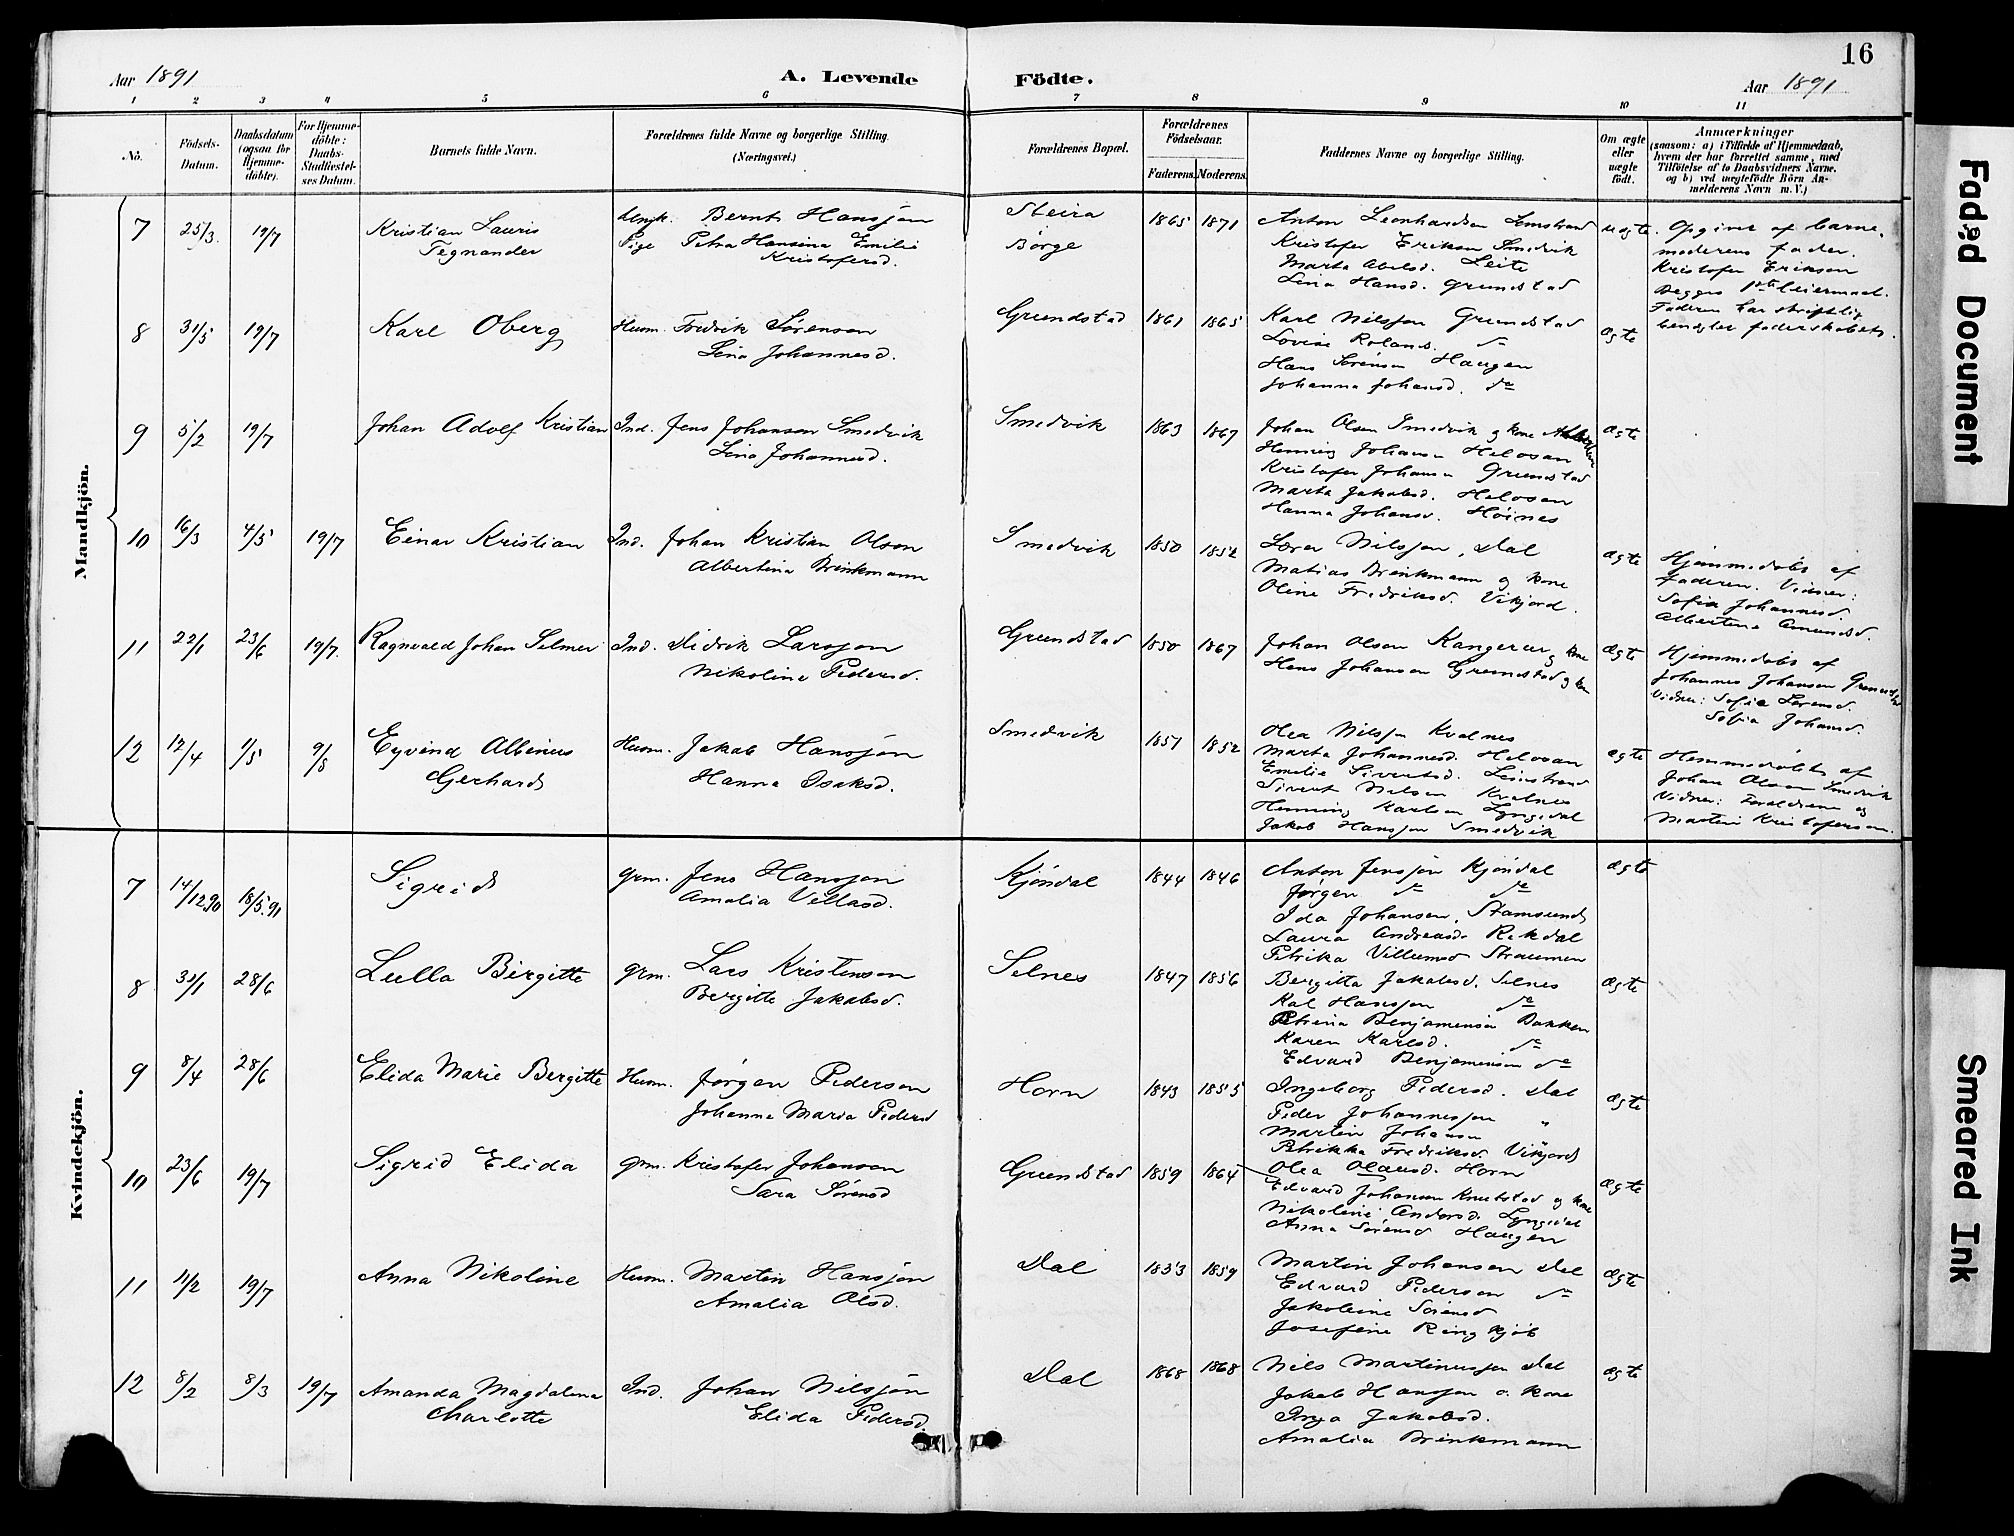 16
Aar 1891
A. Levende Födte.
Aar 1891
1 2 3 4 5 6 7 8 9 10 11
No.
Födsels-Datum.
Daabsdatum (ogsaa for Hjemme-döbte).
For Hjemme-döbte: Daabs-Stadfæstelses Datum.
Barnets fulde Navn.
Forældrenes fulde Navne og borgerlige Stilling. (Næringsvei.)
Forældrenes Bopæl.
Forældrenes Födselsaar.
Faderens. Moderens.
Faddernes Navne og borgerlige Stilling.
Om ægte eller uægte födt.
Anmærkninger
(saasom: a) i Tilfælde af Hjemmedaab,
hvem der har forrettet samme, med
Tilföielse af to Daabsvidners Navne.
og b) ved uægtefödte Börn An-
melderens Navn m. V.)
Mandkjön.
7 25/3. 19/7 Kristian Lauris Tegnander
Ungk. Bernt Hansjøn
Pige Petra Hansina Emilie Kristofersd.
Steira Börge 1865 1871
Anton Leonhardsen Lemstrand
Kristofer Eriksen Smedvik
Marta Abelsd. Leite
Lina Hansd. Grundstad
uægte.
Opgivet af barne-
moderens fader.
Kristofer Eriksen
Begges 1ste leiermaal.
Faderen har skriftlig
benegtet faderskabet.
8 31/5 19/7 Karl Oberg
Husm. Fredrik Sørensen
Lina Johannesd.
Grundstad 1861 1865
Karl Nilsjøn Grundstad
Lovise Rolands. do
Hans Sørensen Haugen
Johanna Johansd. do
ægte
9 5/2 19/7 Johan Adolf Kristian
Ind. Jens Johansen Smedvik
Lina Johannesd.
Smedvik 1863 1867
Johan Olsen Smedvik og kone
Henning Johansen Helosan
Kristofer Johansen Grundstad
Marta Jakobsd. Helosan
Hanna Johansd. Høines
ægte
10 16/3 4/5 19/7 Einar Kristian
Ind. Johan Kristian Olsen
Albertina Brinkmann
Smedvik 1850 1852
Nilsjøn, Dal
Matias Brinkmann og kone
Oline Fredriksd. Vikjord.
ægte
Hjemmedøbt af
Faderen. Vidner:
Sofia Johannesd.
Albertine Amundsd.
11 22/1 23/6 19/7. Ragnvald Johan Selmer
Ind. Didrik Larsjøn
Nikoline Pedersd.
Grundstad 1850 1867
Johan Olsen Kangerur og kone
Hans Johansen Grundstad og kone
ægte
Hjemmedøbt af
Johannes Johansen Grundstad
Vidner: Sofie Sørensd.
Sofia Johansd.
12 12/4 1/5 9/8 Eyvind Albinus Gerhard
Husm. Jakob Hansjøn
Hanna Isaksd.
Smedvik 1851 1852
Olea Nilsjøn Kvalnes
Marta Johannesd. Helosan
Emelie Sivertsd. Leinstrand
Sivert Nilsen Kvalnes
Henning Karlsen Lyngedal
Jakob Hansjøn Smedvik
ægte
Hemmedøbt af
Johan Olsen Smedvik
Vidner: Forældrene og
Martin Kristofersen.
Kvindekjön.
7 14/12.90 18/5.91 Sigrid
grm. Jens Hansjøn
Amalia Vellasd.
Kjöndal 1844 1846
Anton Jensjøn Kjöndal
Jørgen do do
Ida Johansen, Stamsund
Laura Andreasd. Rekdal
Petrika Villumsd Straumen
ægte
8 31/1 28/6 Lulla Birgitte
grm. Lars Kristensen
Bergitte Jakobsd.
Selnes 1847 1856
Bergitta Jakobsd. Selnes
Kal Hansjøn do
Petrina Benjaminsen Bakken
Karen Karlsd. do
Edvard Benjaminsen do
ægte
9 8/4 28/6 Elida Marie Bergitte
Husm. Jørgen Pedersen
Johanna Maria Pedersd
Horn 1843 1855
Ingeborg Pedersd. Dal
Peder Johannesjøn "
Martin Johansen
Petrikka Fredriksd. Vikjord
Olea Olausd. Horn
ægte
10 23/6 19/7 Sigrid Elida
grm. Kristofer Johansen
Sara Sørensd
Grundstad 1859 1864
Edvard Johansen Knutstad og kone
Nikoline Andersd. Lyngedal
Anna Sørensd Haugen
ægte
11 11/2 19/7 Anna Nikoline
Husm. Martin Hansjøn
Amalia Olsd.
Dal 1853 1859
Martin Johansen Dal
Edvard Pedersen do
Jakobine Sørensd
Josefine Ringkjöb
ægte
12 8/2 8/3 19/7 Amanda Magdalena Charlotte
Ind. Johan Nilsjøn
Elida Pedersd.
Dal 1868 1868
Nils Martinusjøn Dal
Jakob Hansjøn o. kone
Jakobsd.
Amalia Brinkmann
ægte
Faded Document
Smeared Ink